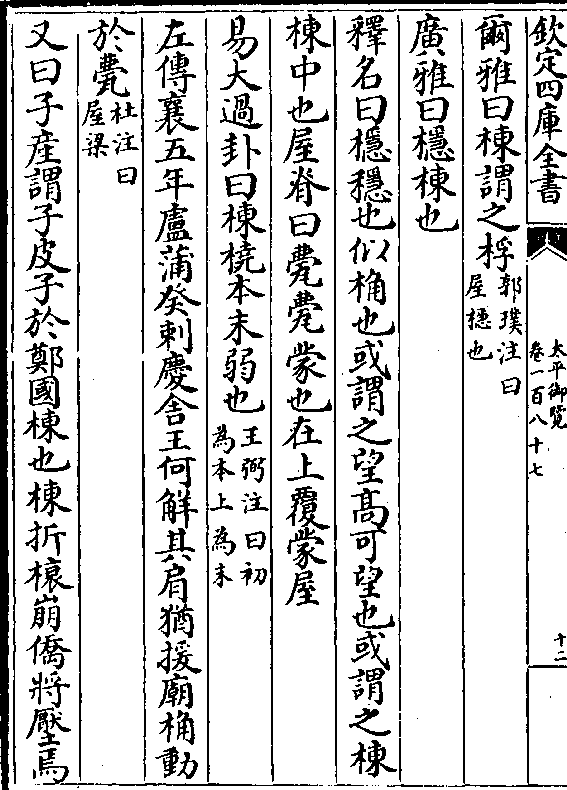 欽定四庫全書
太平御覽
卷一百八十七
十二
爾雅曰棟謂之桴郭璞注曰
屋檼也
廣雅曰檼棟也
釋名曰檼穩也似桷也或謂之望高可望也或謂之棟
棟中也屋脊曰甍甍蒙也在上覆蒙屋
易大過卦曰棟橈本末弱也王弼注曰初
為本上為末
左傳襄五年盧蒲癸刺慶舍王何解其肩猶援廟桷動
於甍杜注曰
屋梁
又曰子産謂子皮子於鄭國棟也棟折榱崩僑將壓焉